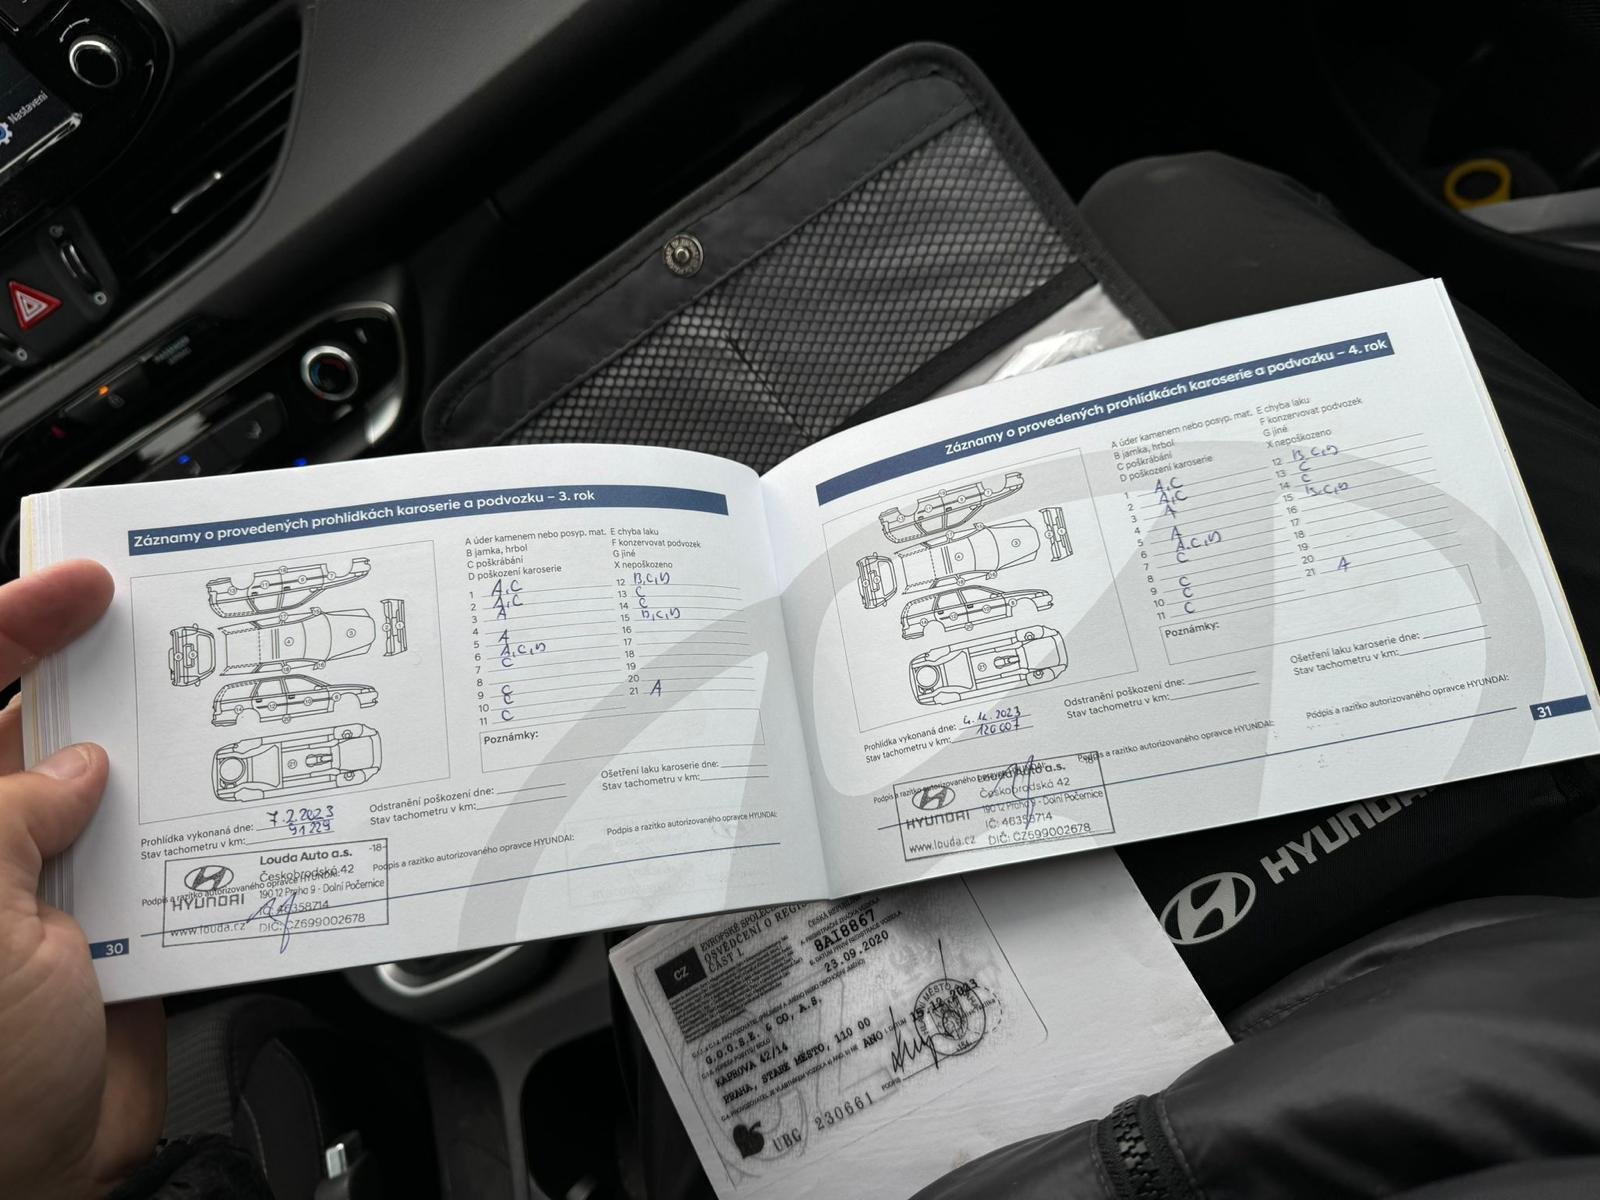 Nastavení
Záznamy o provedených prohlídkách karoserie a podvozku – 3. rok
A úder kamenem nebo posyp. mat.
B jamka, hrbol
C poškrábání
D poškození karoserie
E chyba laku
F konzervovat podvozek
G jiné
X nepoškozeno
1 A,C
2 A,C
3 A
4
5 A
6 A,C,D
7 C
8
9 C
10 C
11 C
12 B,C,D
13 C
14 C
15 B,C,D
16
17
18
19
20
21 A
Poznámky:
Prohlídka vykonaná dne: 7.2.2023
Stav tachometru v km: 91 229
Odstranění poškození dne:
Stav tachometru v km:
Ošetření laku karoserie dne:
Stav tachometru v km:
Podpis a razítko autorizovaného opravce HYUNDAI:
Podpis a razítko autorizovaného opravce HYUNDAI:
Podpis a razítko autorizovaného opravce HYUNDAI:
HYUNDAI
www.louda.cz
Louda Auto a.s.
-18-
Českobrodská 42
190 12 Praha 9 - Dolní Počernice
IČ: 46358714
DIČ: CZ699002678
30
Záznamy o provedených prohlídkách karoserie a podvozku – 4. rok
A úder kamenem nebo posyp. mat.
B jamka, hrbol
C poškrábání
D poškození karoserie
E chyba laku
F konzervovat podvozek
G jiné
X nepoškozeno
1 A,C
2 A,C
3 A
4
5 A
6 A,C,D
7 C
8
9 C
10 C
11 C
12 B,C,D
13 C
14 C
15 B,C,D
16
17
18
19
20
21 A
Poznámky:
Prohlídka vykonaná dne: 2023
Stav tachometru v km: 120 007
Odstranění poškození dne:
Stav tachometru v km:
Ošetření laku karoserie dne:
Stav tachometru v km:
Podpis a razítko autorizovaného opravce HYUNDAI:
Podpis a razítko autorizovaného opravce HYUNDAI:
Podpis a razítko autorizovaného opravce HYUNDAI:
HYUNDAI
www.louda.cz
Louda Auto a.s.
Českobrodská 42
190 12 Praha 9 - Dolní Počernice
IČ: 46358714
DIČ: CZ699002678
31
HYUNDAI
CZ
EVROPSKÉ SPOLEČ
OSVĚDČENÍ O REGIS
ČÁST I.
ČESKÁ REPUBLIKA
A. REGISTRAČNÍ ZNAČKA VOZIDLA
8AI8867
B. DATUM PRVNÍ REGISTRACE VOZIDLA
23.09.2020
G.O.O.S.E. & CO, A.S.
KAPROVA 42/14
PRAHA, STARÉ MĚSTO, 110 00
ANO
DATUM 15.12.2023
PODPIS
UBG 230661